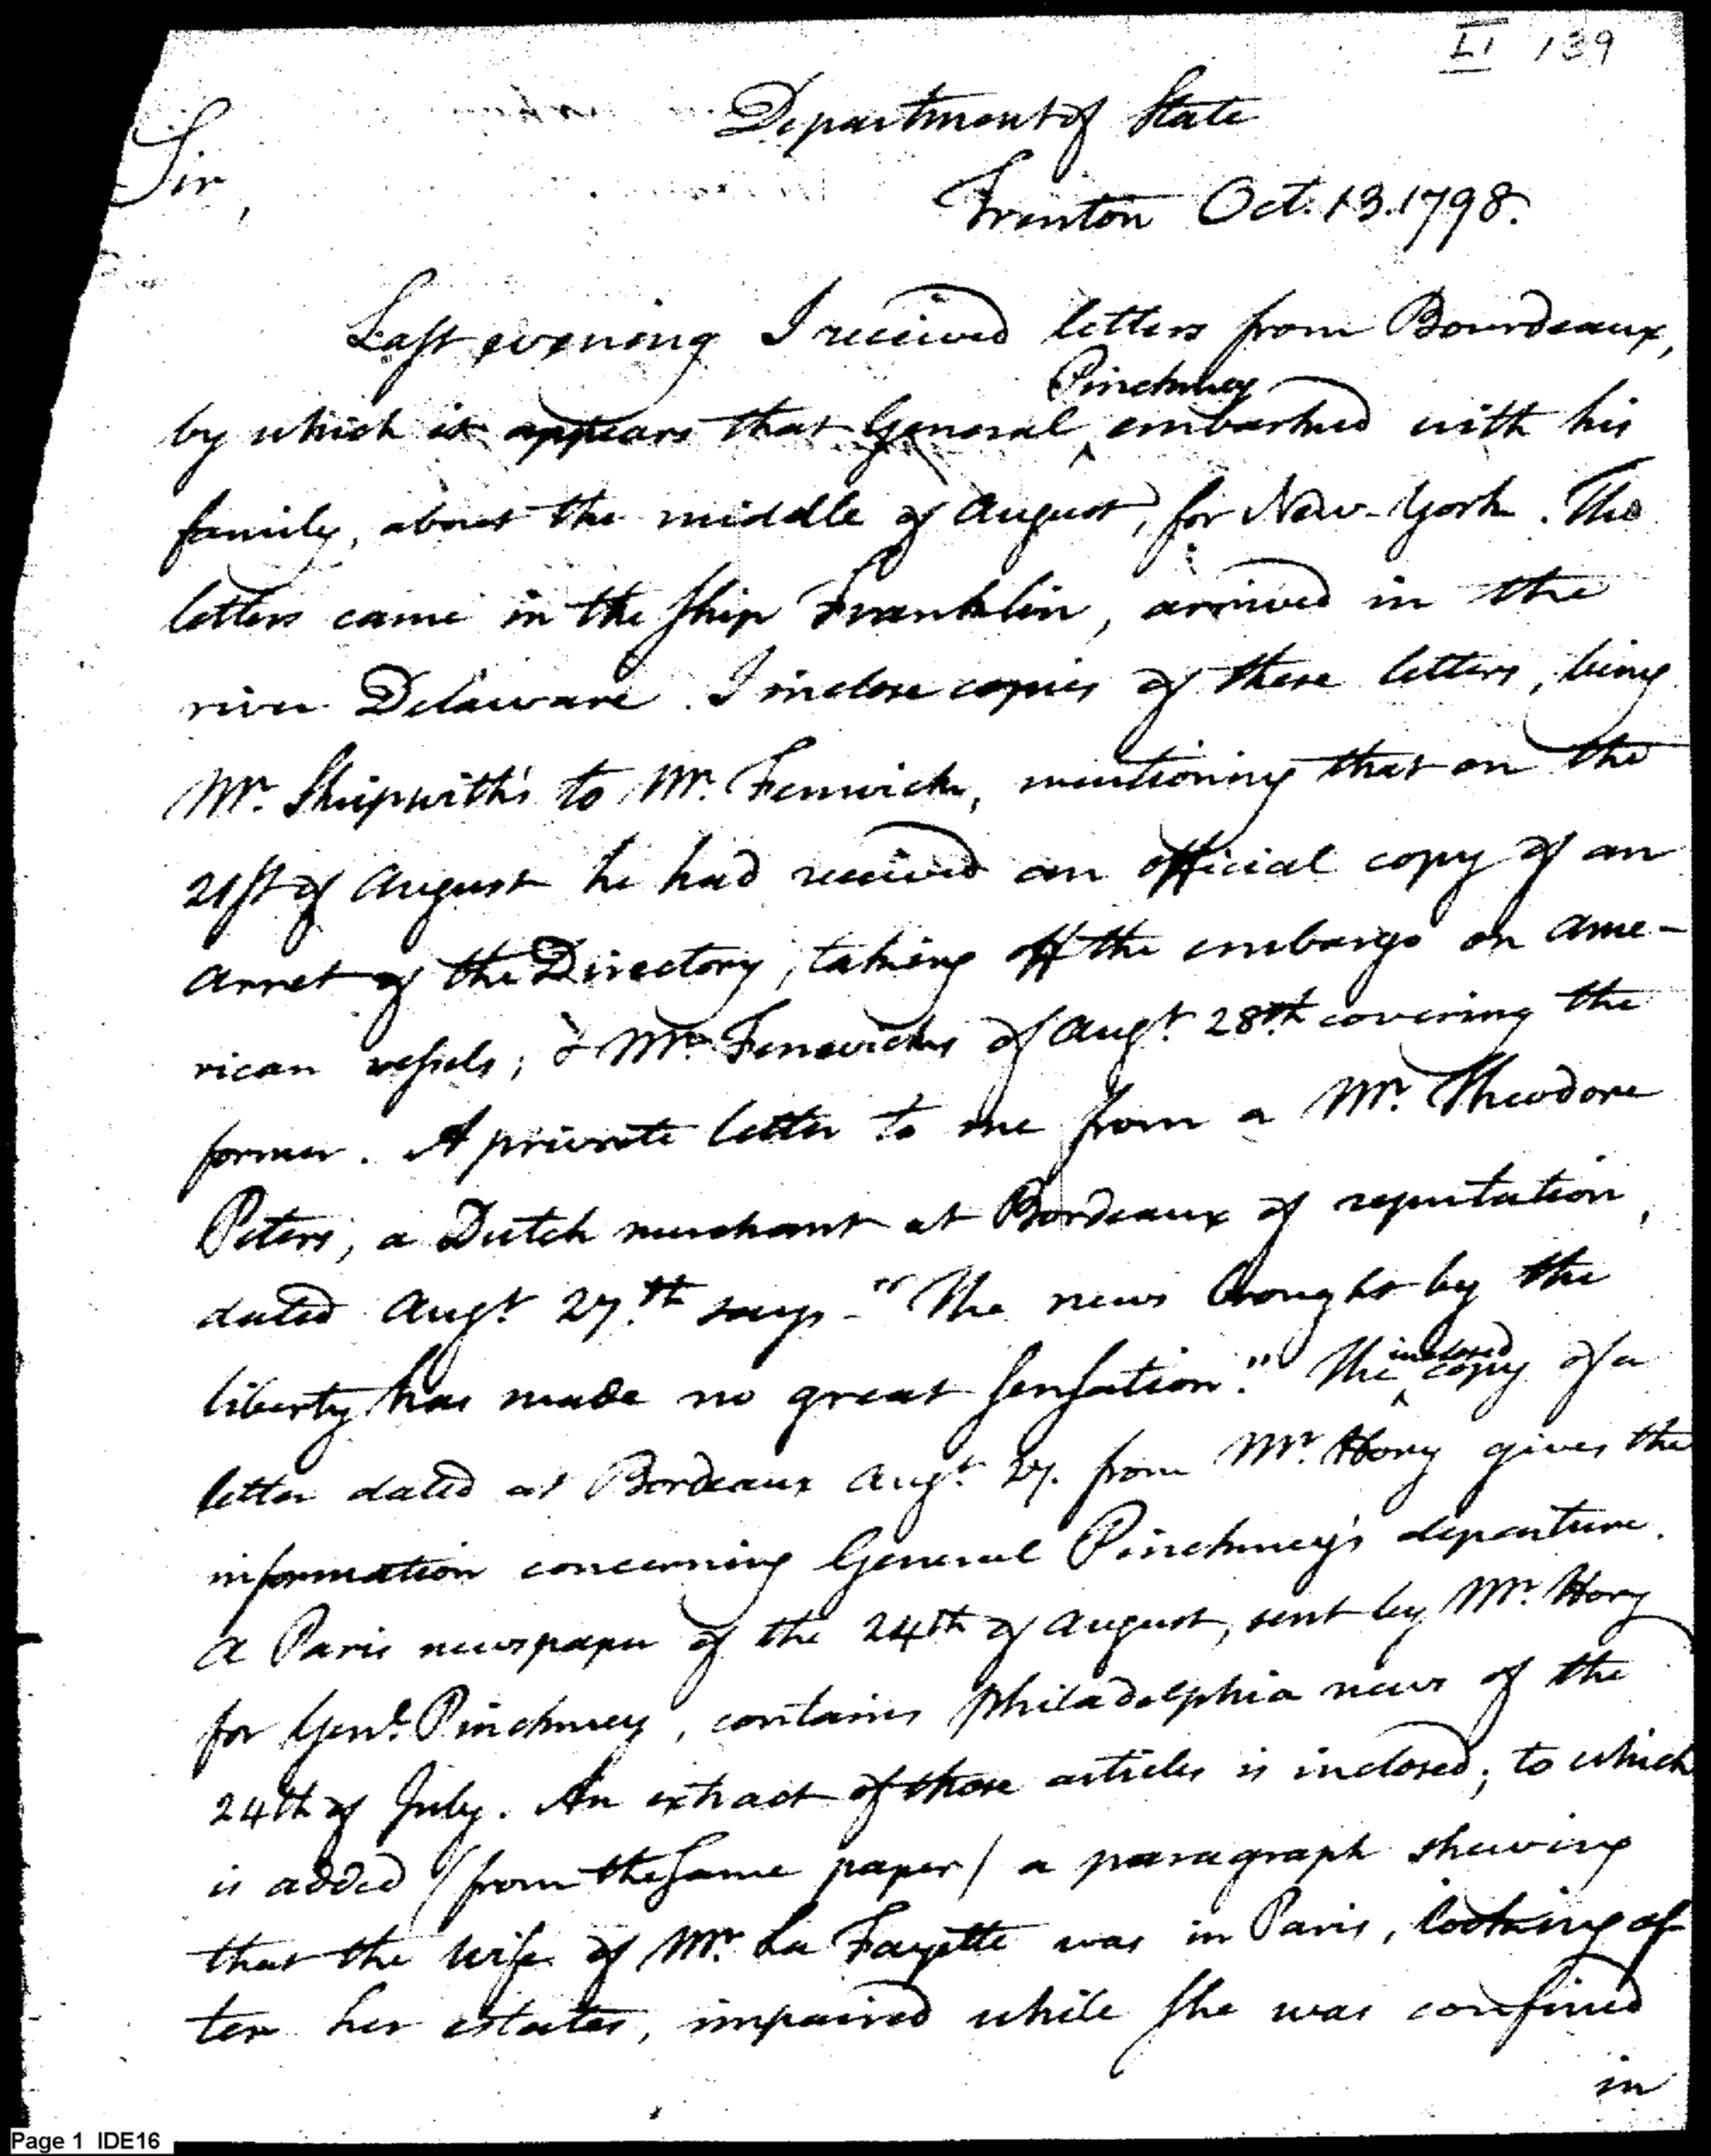 LI 139
Department of State
Sir,
Trenton Oct. 13. 1798.
Last evening I received letters from Bourdeaux,
Pinckney
by which it appears that General ‸ embarked with his
family, about the middle of August, for New-York. The
letters came in the ship Franklin, arrived in the
river Delaware. I inclose copies of these letters, being
Mr. Skipwith's to Mr. Fenwick, mentioning that on the
21st of August he had received an official copy of an
arret of the Directory, taking off the embargo on Ame-
rican vessels; & Mr. Fenwick's of Augt. 28th. covering the
former. A private letter to me from a Mr. Theodore
Peters, a Dutch merchant at Bordeaux of reputation,
dated Augt. 27th. says - "The news brought by the
inclosed
liberty has made no great sensation." The ‸ copy of a
letter dated at Bordeaux Augt. 27. from Mr. Hory gives the
information concerning General Pinckney's departure.
A Paris newspaper of the 24th of August, sent by Mr. Hory
for Genl. Pinckney, contains Philadelphia news of the
24th of July. An extract of those articles is inclosed; to which
is added (from the same paper) a paragraph shewing
that the wife of Mr. La Fayette was in Paris, looking af
ter her estates, impaired while she was confined
in
Page 1 IDE16